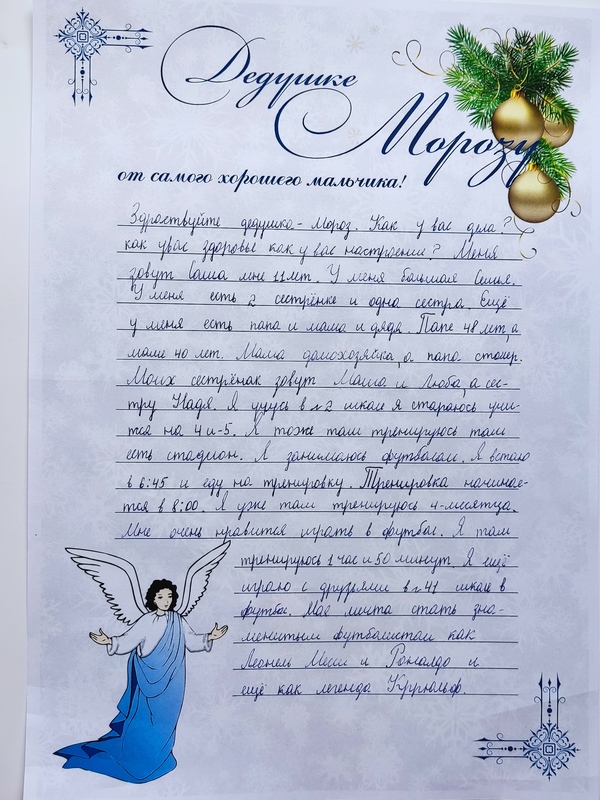 Дедушке
Морозу
от самого хорошего мальчика!
Здраствуйте дедушка-Мороз. Как у вас дела?
как у вас здоровье как у вас настроение? Меня
зовут Саша мне 11 лет. У меня большая семья.
У меня есть 2 сестрёнке и одна сестра. Ещё
у меня есть папа и мама и дядя. Папе 48 лет, а
маме 40 лет. Мама домохозяйка, а папа столяр.
Моих сестрёнак зовут Маша и Люба, а сес-
тру Надя. Я учусь в №2 школе я стараюсь учи-
тся на 4 и-5. Я тоже там тренируюсь там
есть стадион. Я занимаюсь футболом. Я встаю
в 6:45 и еду на тренировку. Тренировка начинае-
тся в 8:00. Я уже там тренируюсь 4-месятца.
Мне очень нравится играть в футбол. Я там
тренируюсь 1 час и 50 минут. Я ещё
играю с друзьями в №41 школе в
футбол. Моя мечта стать зна-
менитым футболистом как
Леонель Месси и Роналдо и
ещё как легенда Круильф.